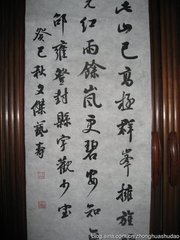 山已高極群峯擁旌
紅雨餘嵐更碧安知
邵雍登封縣宇觀少室
癸巳秋文傑
blog.sina.com.cn/zhonghuashudao